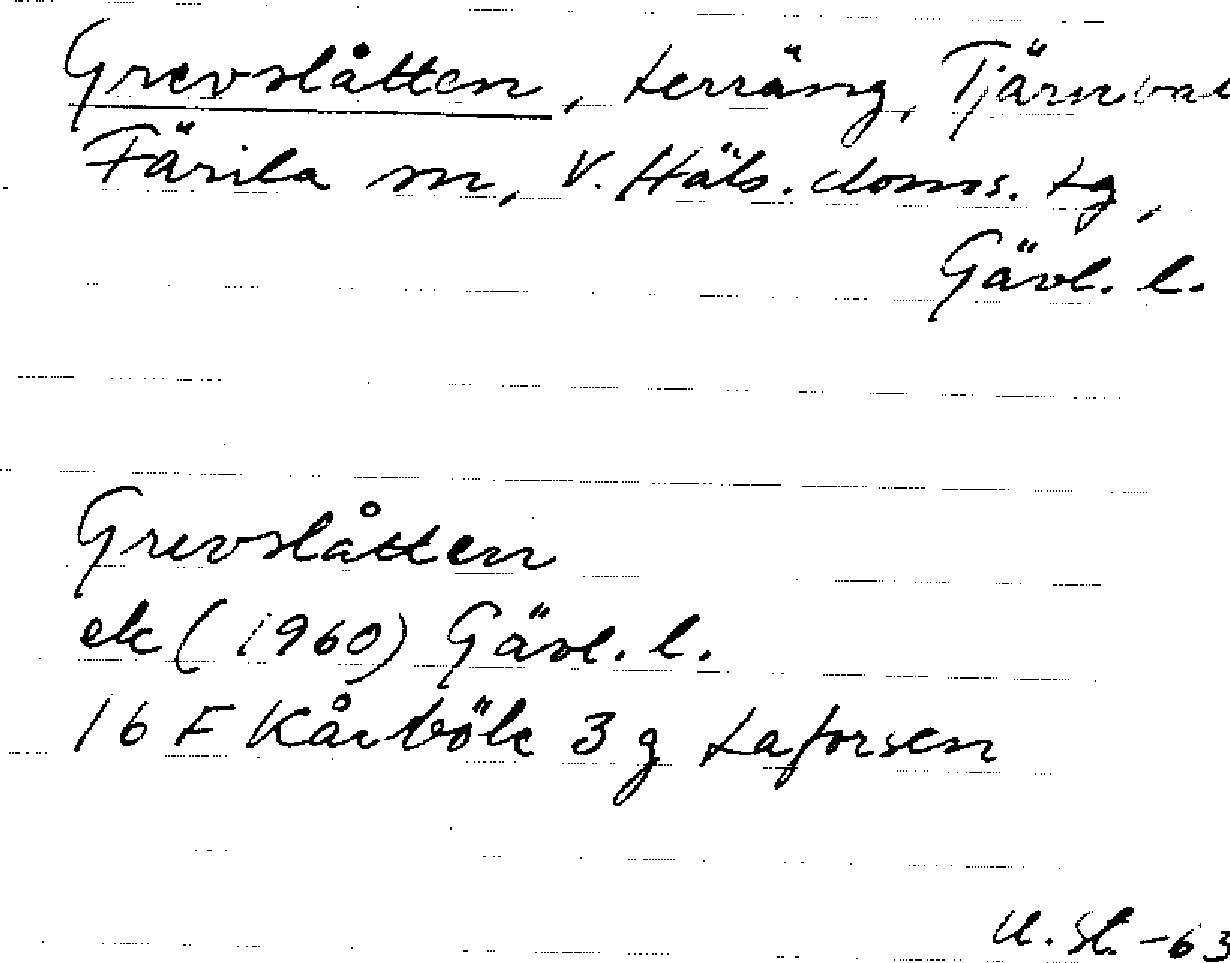 Grevslåtten, terräng, Tjärnval
Färila sn, V. Häls. doms. tg,
Gävl. l.
Grevslåtten
ek (1960) Gävl. l.
16 F Kårböle 3 g Laforsen
-63